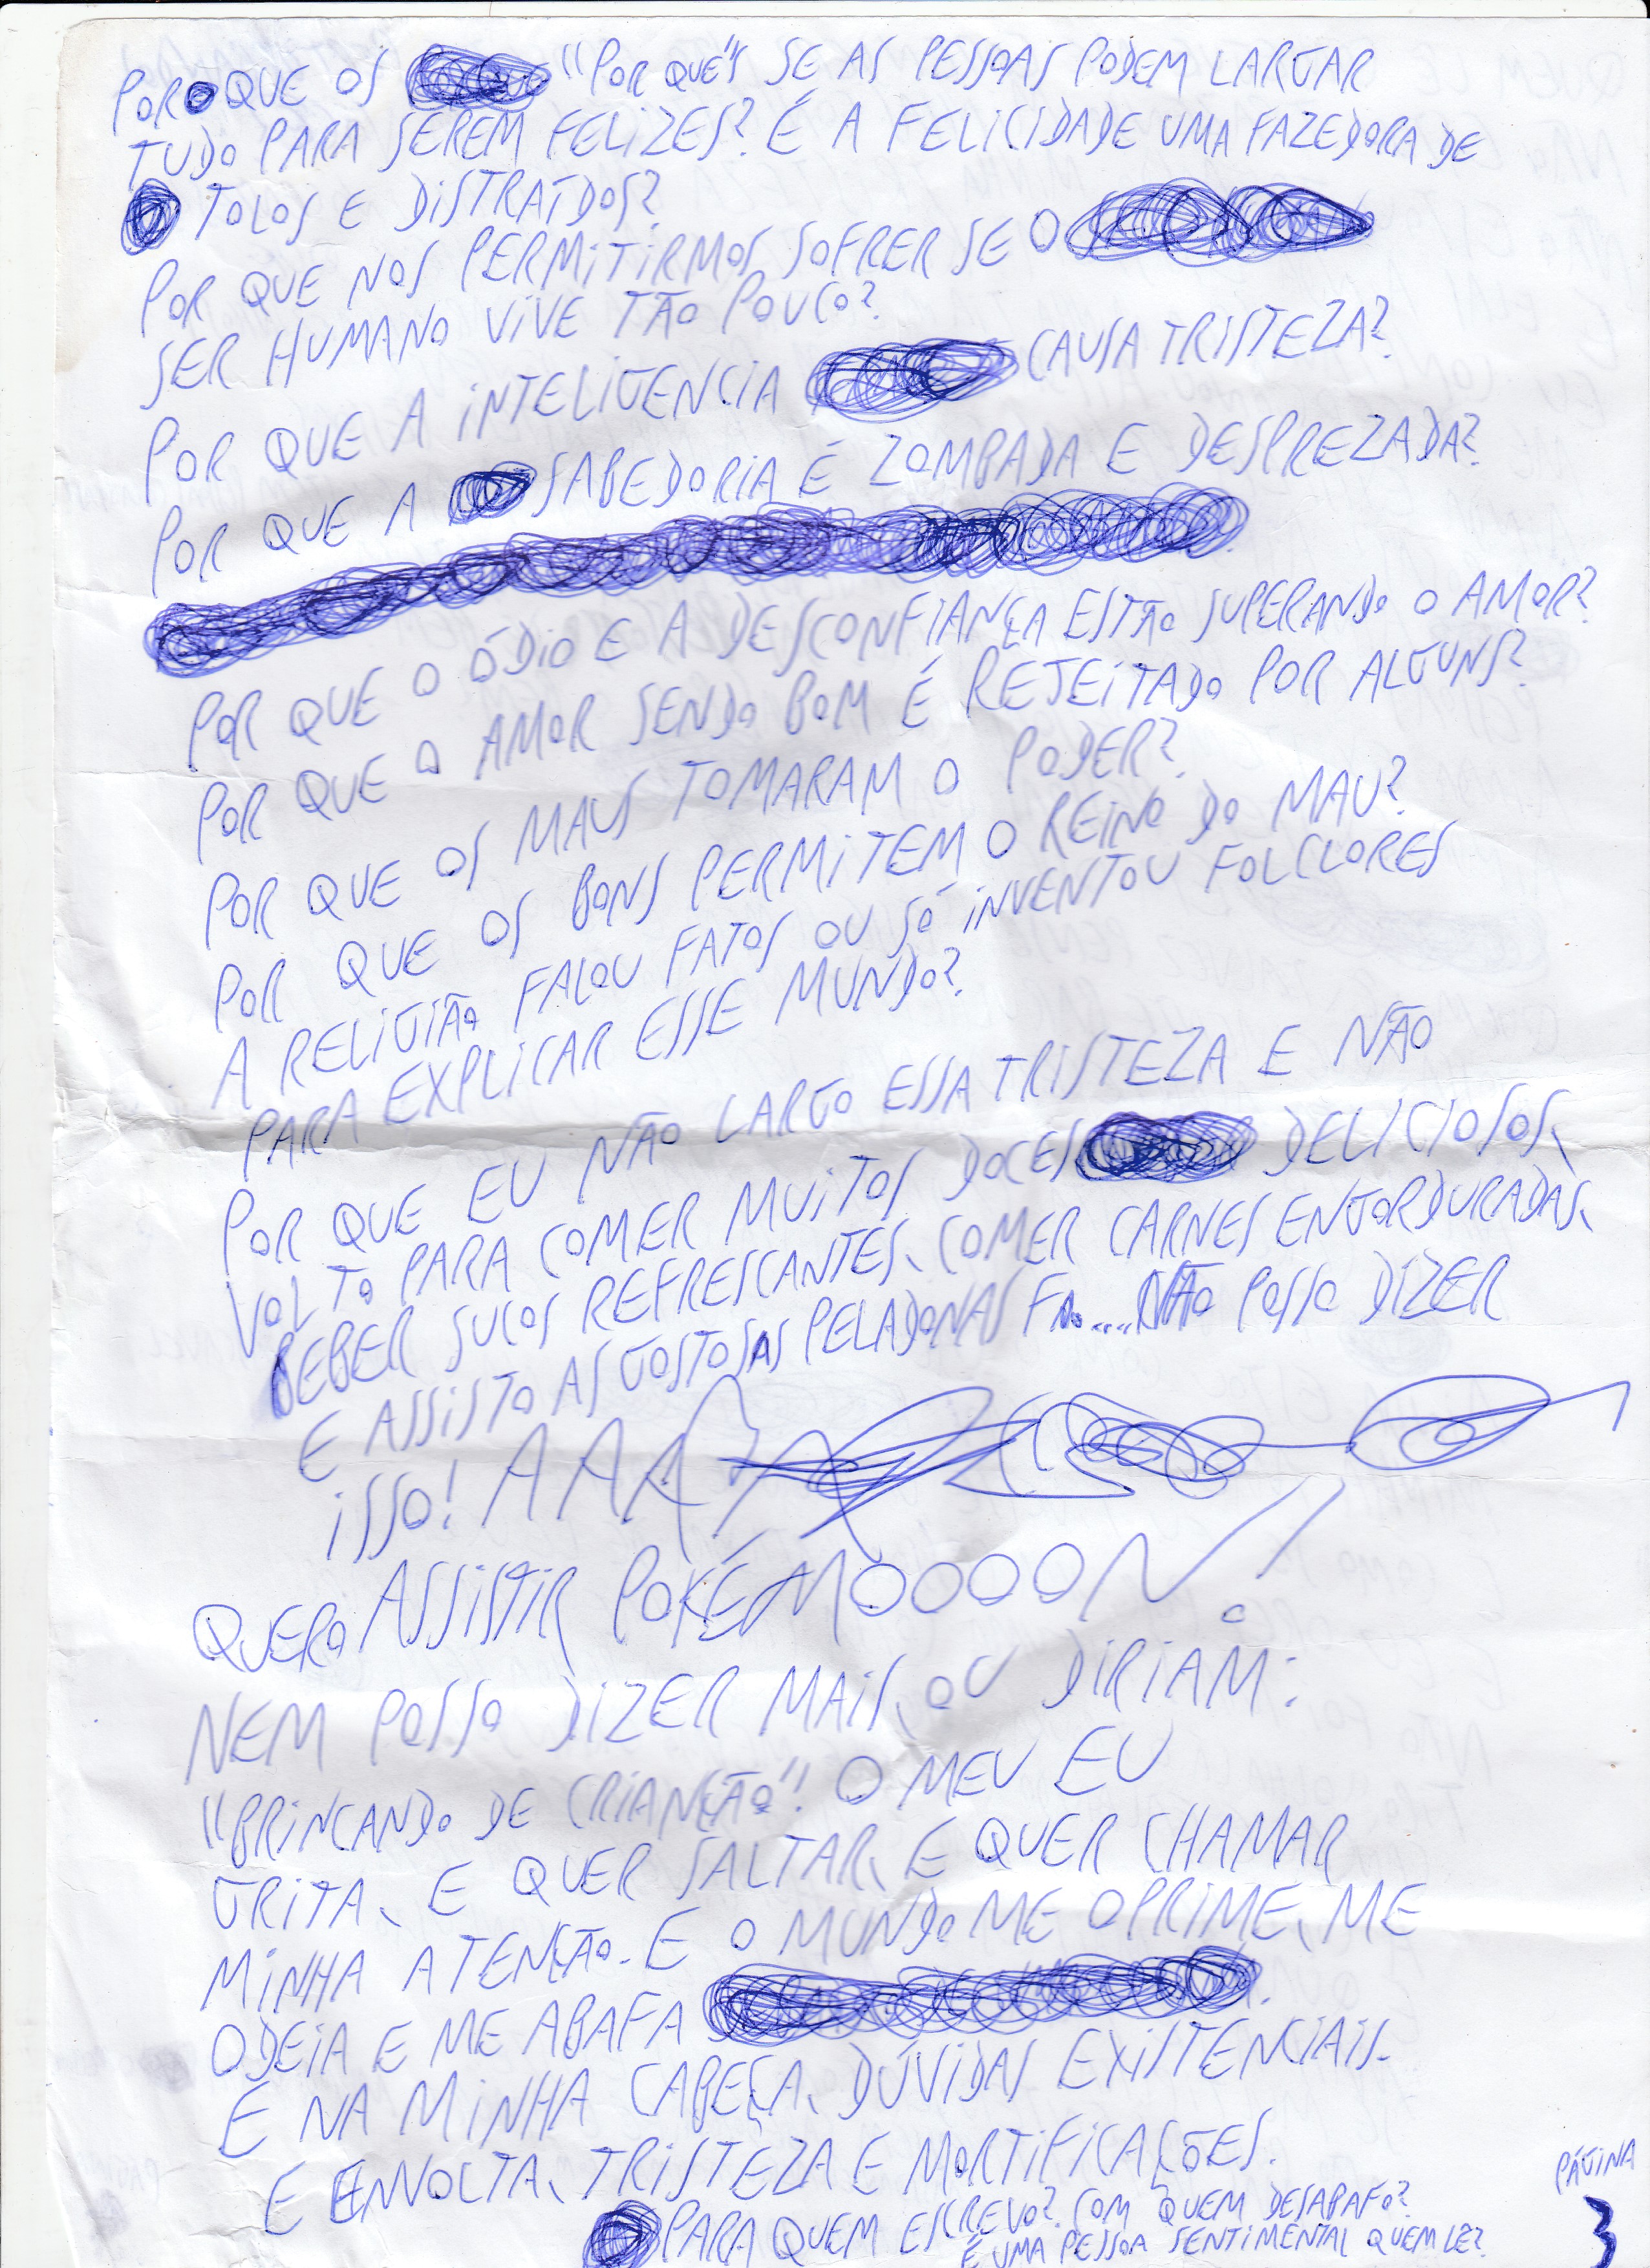 POR QUE OS "POR QUÊ"S SE AS PESSOAS PODEM LARGAR
TUDO PARA SEREM FELIZES? É A FELICIDADE UMA FAZEDORA DE
TOLOS E DISTRAÍDOS?
POR QUE NOS PERMITIRMOS SOFRER SE O
SER HUMANO VIVE TÃO POUCO?
POR QUE A INTELIGENCIA CAUSA TRISTEZA?
POR QUE A SABEDORIA É ZOMBADA E DESPREZADA?
POR QUE O ÓDIO E A DESCONFIANÇA ESTÃO SUPERANDO O AMOR?
POR QUE O AMOR SENDO BOM É REJEITADO POR ALGUNS?
POR QUE OS MAUS TOMARAM O PODER?
POR QUE OS BONS PERMITEM O REINO DO MAU?
A RELIGIÃO FALOU FATOS OU SÓ INVENTOU FOLCLORES
PARA EXPLICAR ESSE MUNDO?
POR QUE EU NÃO LARGO ESSA TRISTEZA E NÃO
VOLTO PARA COMER MUITOS DOCES DELICIOSOS,
BEBER SUCOS REFRESCANTES, COMER CARNES ENGORDURADAS,
E ASSISTO AS GOSTOSAS PELADONAS FA.....NÃO POSSO DIZER
ISSO! AAA
QUERO ASSISTIR POKÉMOOOON!
NEM POSSO DIZER MAIS, OU DIRIAM:
"BRINCANDO DE CRIANÇÃO"! O MEU EU
GRITA, E QUER SALTAR, E QUER CHAMAR
MINHA ATENÇÃO. E O MUNDO ME OPRIME, ME
ODEIA E ME ABAFA
E NA MINHA CABEÇA, DÚVIDAS EXISTENCIAIS.
E ENVOLTA, TRISTEZA E MORTIFICAÇÕES.
PARA QUEM ESCREVO? COM QUEM DESABAFO?
É UMA PESSOA SENTIMENTAL QUEM LÊ?
PÁGINA
3